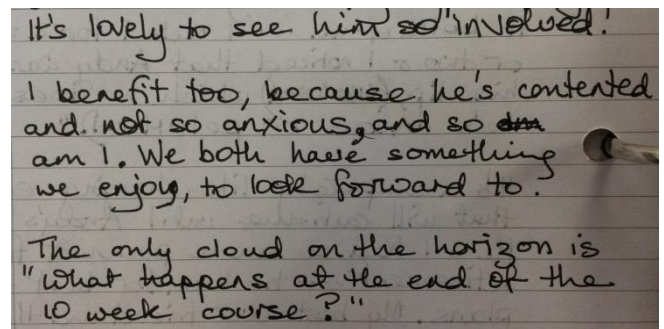 It's lovely to see him so involved!
I benefit too, because he's contented
and not so anxious, and so am
am I. We both have something
we enjoy, to look forward to.
The only cloud on the horizon is
"what happens at the end of the
10 week course?"